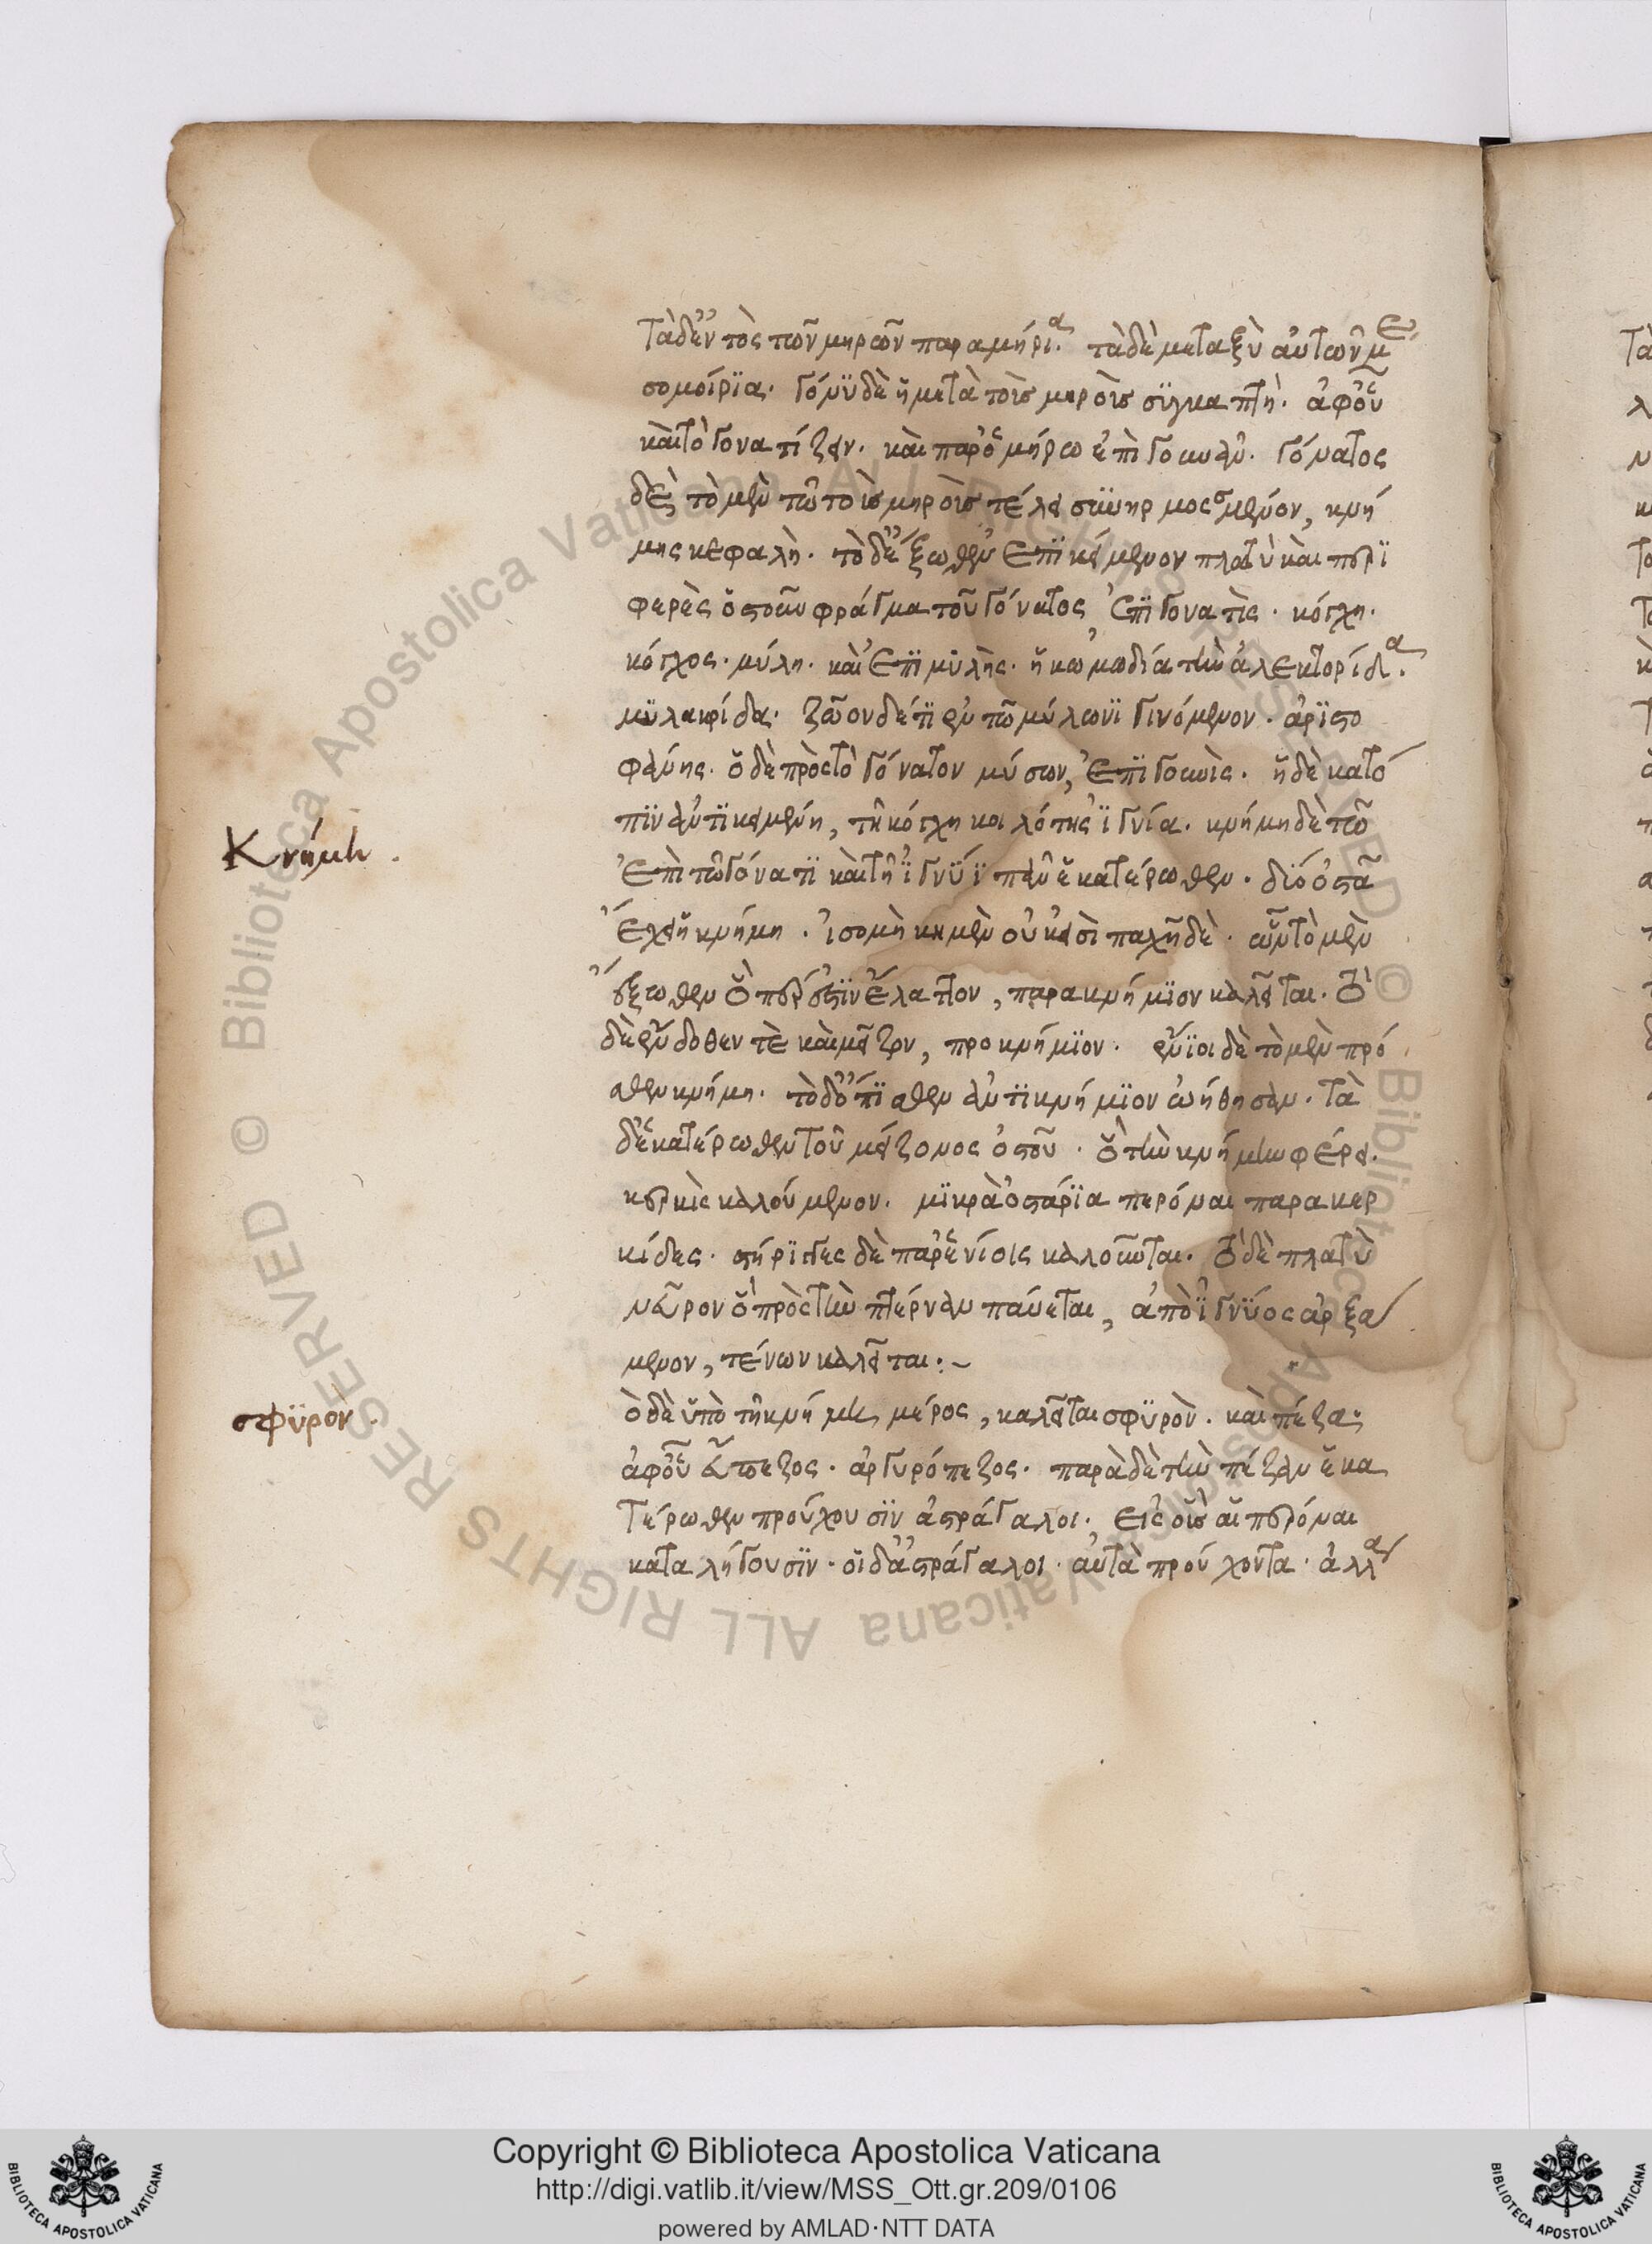 τὰ δ' ἐντὸς τῶν μηρῶν παραμήρια. τὰ δὲ μεταξὺ αὐτῶν με
σομοίρϊα. γόνϋ δὲ ἡ μετὰ τοῖς μηροῖς σϋγκαπτὴ. ἀφ' οὗ
καὶ τὸ γονατίζειν. καὶ παρ' ὁμήρω ἐπὶ γουνῶν. γόνατος
δὲ τὸ μὲν τῶ τοῖς μηροῖς τέλει συνηρμοσμένον, κνή
μης κεφαλὴ. τὸ δ' ἔξωθεν ἐπϊκείμενον πλατὺ καὶ περϊ
φερὲς ὀστοῦν φράγμα τοῦ γόνατος, ἐπϊγονατὶς. κόγχη.
κόγχος. μύλη. καὶ ἐπϊμϋλὶς. ἡ κωμωδία τὴν ἀλεκτορίδα.
μϋλακρίδα. ζῶον δέ τϊ ἐν τῶ μύλωνϊ γινόμενον. ἀρϊστο
φάνης. ὁ δὲ πρὸς τὸ γόνατον μύσων, ἐπϊγουνὶς. ἡ δὲ κατό
πϊν ἀντϊκειμένη, τῆ κόγχη κοιλότης ἰγνία. κνήμη δὲ τῶ
ἐπὶ τῶ γόνατϊ καὶ τῆ ἰγνϋΐ πᾶν ἑκατέρωθεν. δϊό ὀστᾶ
ἔχει ἡ κνήμη. ἰσομήκη μὲν οὐκ ἰσοπαχῆ δὲ. ὧν τὸ μὲν
ἔξωθεν ὅπερ ἐστϊν ἔλαττον, παρακνήμϊον καλεῖται. τὸ
δὲ ἔνδοθεν τὲ καὶ μεῖζον, προκνήμϊον. ἔνϊοι δὲ τὸ μὲν πρό
σθεν κνήμη. τὸ δ' ὄπϊσθεν ἀντϊκνήμϊον ὠνήθησαν. τὰ
δ' ἑκατέρωθεν τοῦ μείζονος ὀστοῦ. ὃ τὴν κνήμην φέρει.
κερκὶς καλούμενον. μϊκρὰ ὀστάρϊα περόναι παρακερ
κίδες. στήρϊγες δὲ παρ' ἐνίοις καλοῦνται. τὸ δὲ πλατὺ
νεῦρον ὃ πρὸς τὴν πτέρναν παύεται, ἀπὸ ἰγνϋος ἀρξά
μενον, τένων καλεῖται:~
Κνήμη.
ὁ δὲ ὑπὸ τῆ κνήμη μέρος, καλεῖται σφϋρὸν. καὶ πέζα:
σφϋρὸν.
ἀφ' οὗ εὔπεζος. ἀργυρόπεζος. παρὰ δὲ τὴν πέζαν ἑκα
τέρωθεν προύχουσϊν ἀστράγαλοι. εἰς οἷς αἱ περόναι
καταλήγουσϊν. οἱ δ' ἀστράγαλοι. αὐτὰ προύχοντα. ἀλλὰ
Copyright © Biblioteca Apostolica Vaticana
http://digi.vatlib.it/view/MSS_Ott.gr.209/0106
powered by AMLAD·NTT DATA
BIBLIOTECA APOSTOLICA VATICANA
BIBLIOTECA APOSTOLICA VATICANA